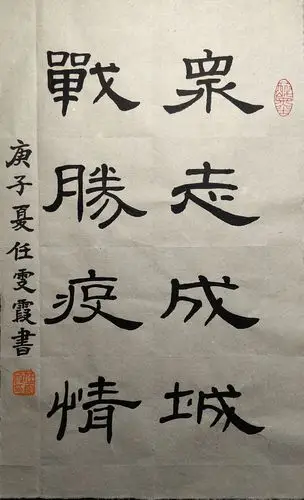 眾志成城
戰勝疫情
庚子夏任雯霞書